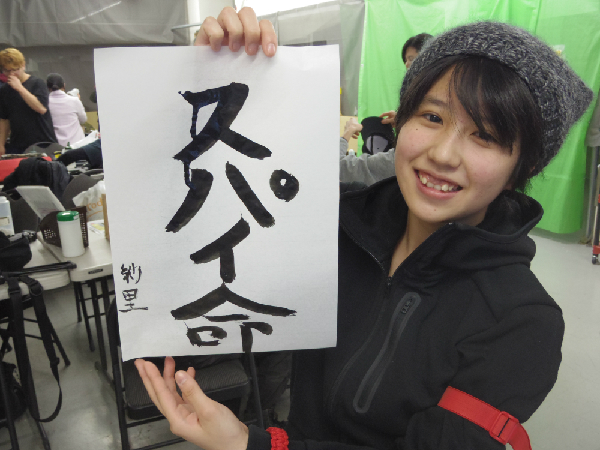 スパイ命
紗里